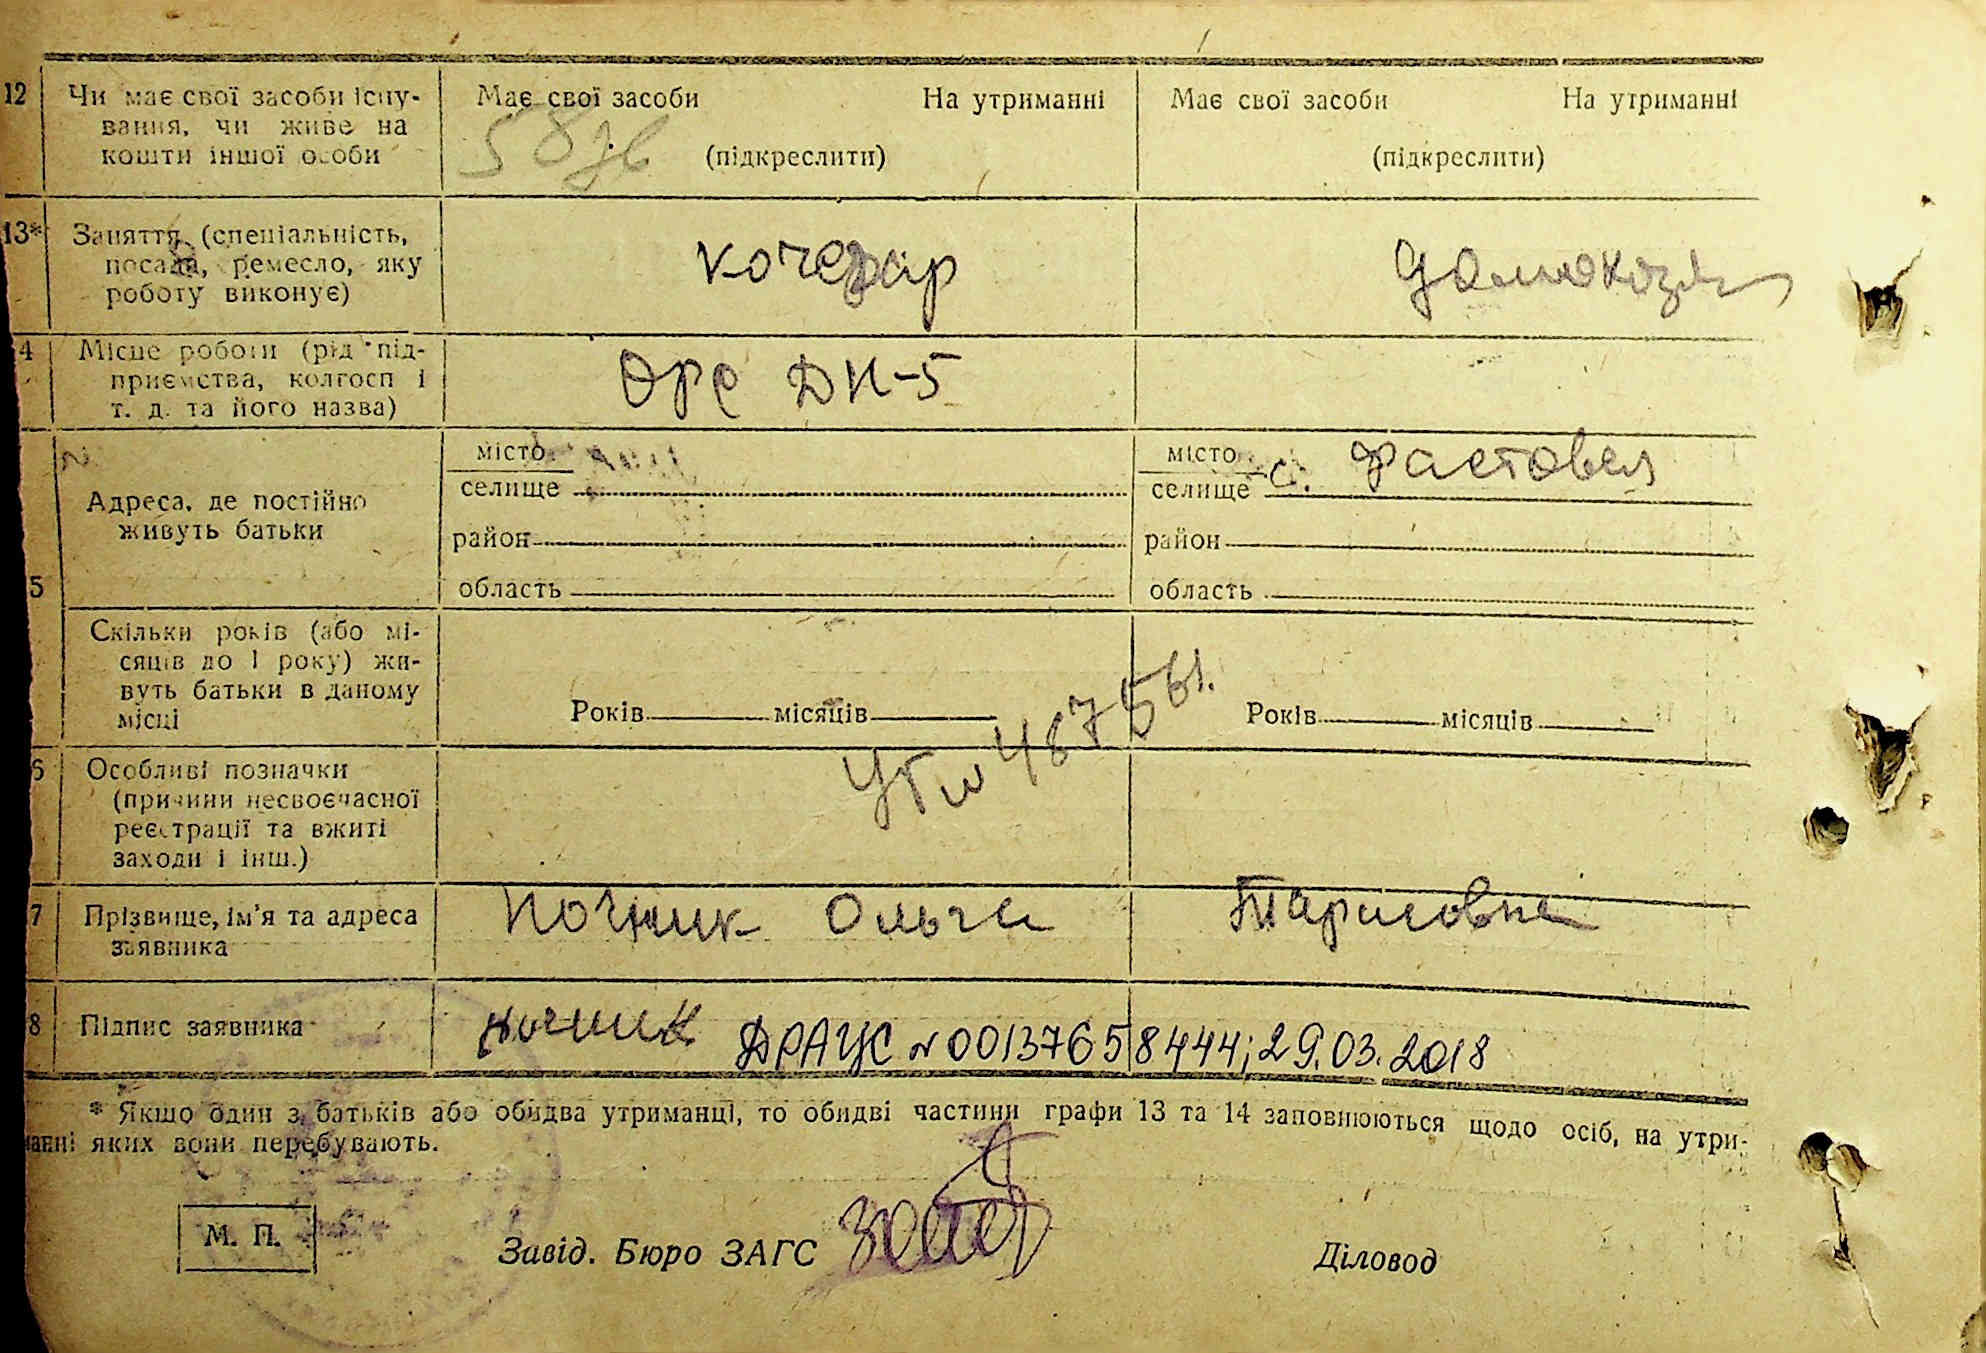 12 Чи має свої засоби існу-
вання, чи живе на
кошти іншої особи
Має свої засоби На утриманні
(підкреслити)
Має свої засоби На утриманні
(підкреслити)
13* Заняття (спеціальність,
посада, ремесло, яку
роботу виконує)
кочегар
домохозяй
4 Місце роботи (рід під-
приємства, колгосп і
т. д. та його назва)
ОРС ДН-5
5 Адреса, де постійно
живуть батьки
місто
селище
район
область
місто
селище с. Фастовец
район
область
Скільки років (або мі-
сяців до 1 року) жи-
вуть батьки в даному
місці
Років місяців
Років місяців
48756
6 Особливі позначки
(причини несвоєчасної
реєстрації та вжиті
заходи і інш.)
7 Прізвище, ім'я та адреса
заявника
Почник Ольга Тарасовна
8 Підпис заявника
Почник ДРАЦС №00137658444; 29.03.2018
* Якщо один з батьків або обидва утриманці, то обидві частини графи 13 та 14 заповнюються щодо осіб, на утри-
манні яких вони перебувають.
М. П.
Завід. Бюро ЗАГС
Діловод